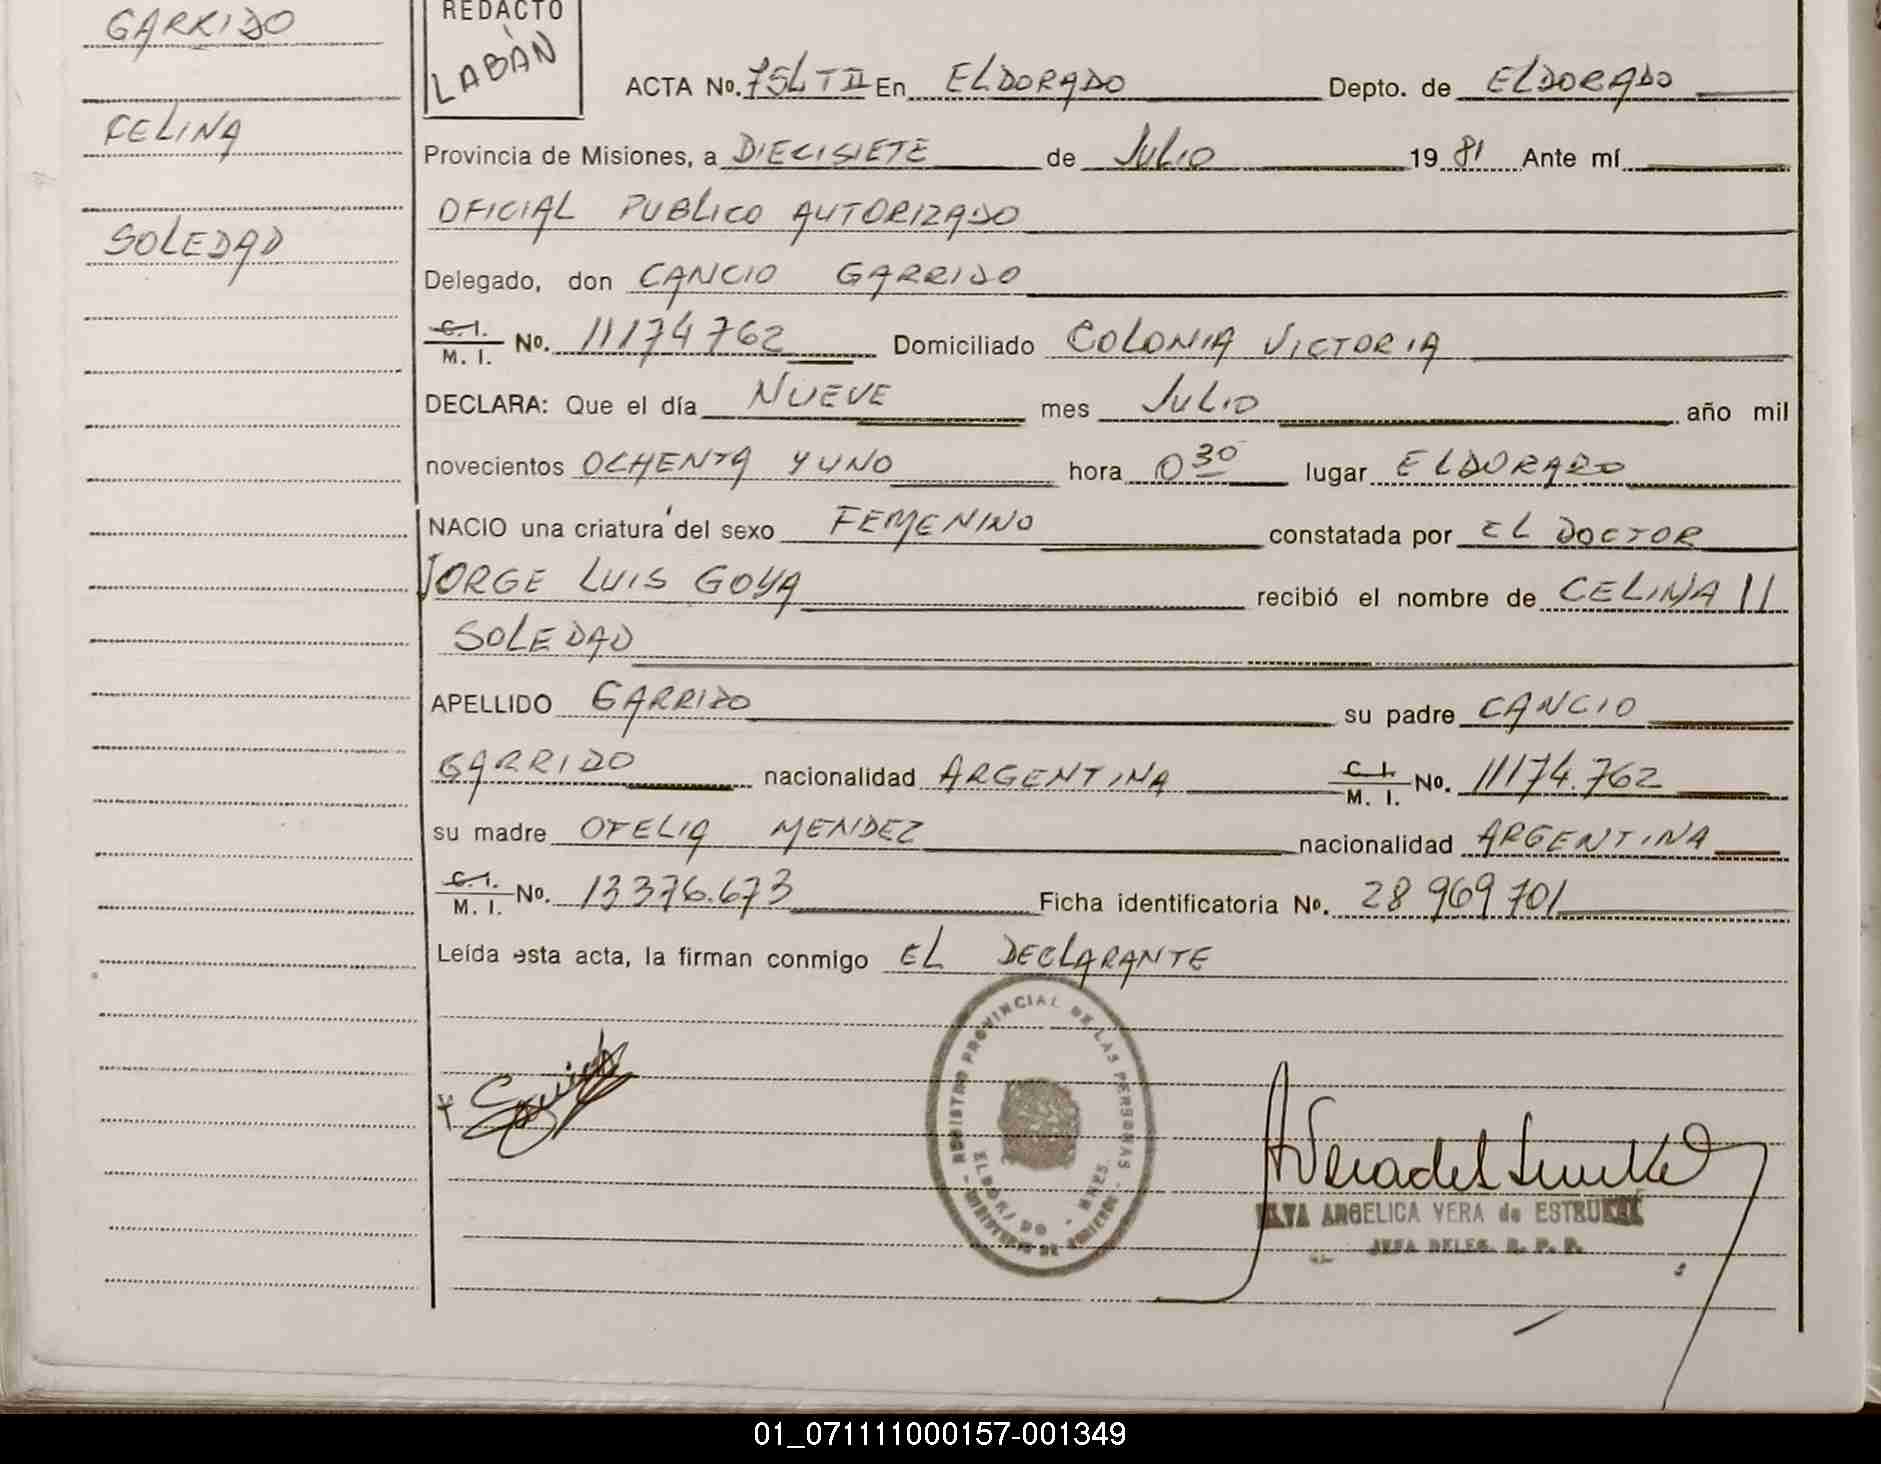 GARRIDO
CELINA
SOLEDAD
REDACTO
LABÁN
ACTA No. 754 T II En ELDORADO Depto. de ELDORADO
Provincia de Misiones, a DIECISIETE de JULIO 19 81 Ante mí
OFICIAL PUBLICO AUTORIZADO
Delegado, don CANCIO GARRIDO
C. I. / M. I. No. 11174762 Domiciliado COLONIA VICTORIA
DECLARA: Que el día NUEVE mes JULIO año mil
novecientos OCHENTA Y UNO hora 0 30 lugar ELDORADO
NACIO una criatura del sexo FEMENINO constatada por EL DOCTOR
JORGE LUIS GOYA recibió el nombre de CELINA
SOLEDAD
APELLIDO GARRIDO su padre CANCIO
GARRIDO nacionalidad ARGENTINA C. I. / M. I. No. 11174.762
su madre OFELIA MENDEZ nacionalidad ARGENTINA
C. I. / M. I. No. 13376.673 Ficha identificatoria No. 28 969 701
Leída esta acta, la firman conmigo EL DECLARANTE
REGISTRO PROVINCIAL DE LAS PERSONAS
ELDORADO - MNES.
MINISTERIO DE GOBIERNO
ANGELICA VERA de
JEFA DELEG. R. P. P.
01_071111000157-001349